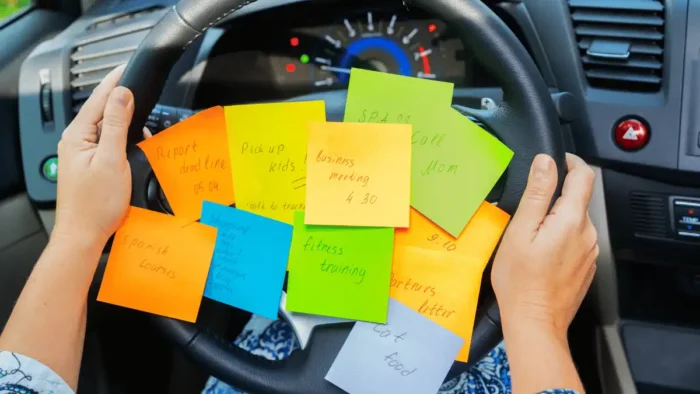 Report
deadline
05.04
Pick up
kids!
business
meeting
4 30
SPA
Call
Mom
Spanish
courses
fitness
training
9.10
Partners
letter
Cat
food
TEMP